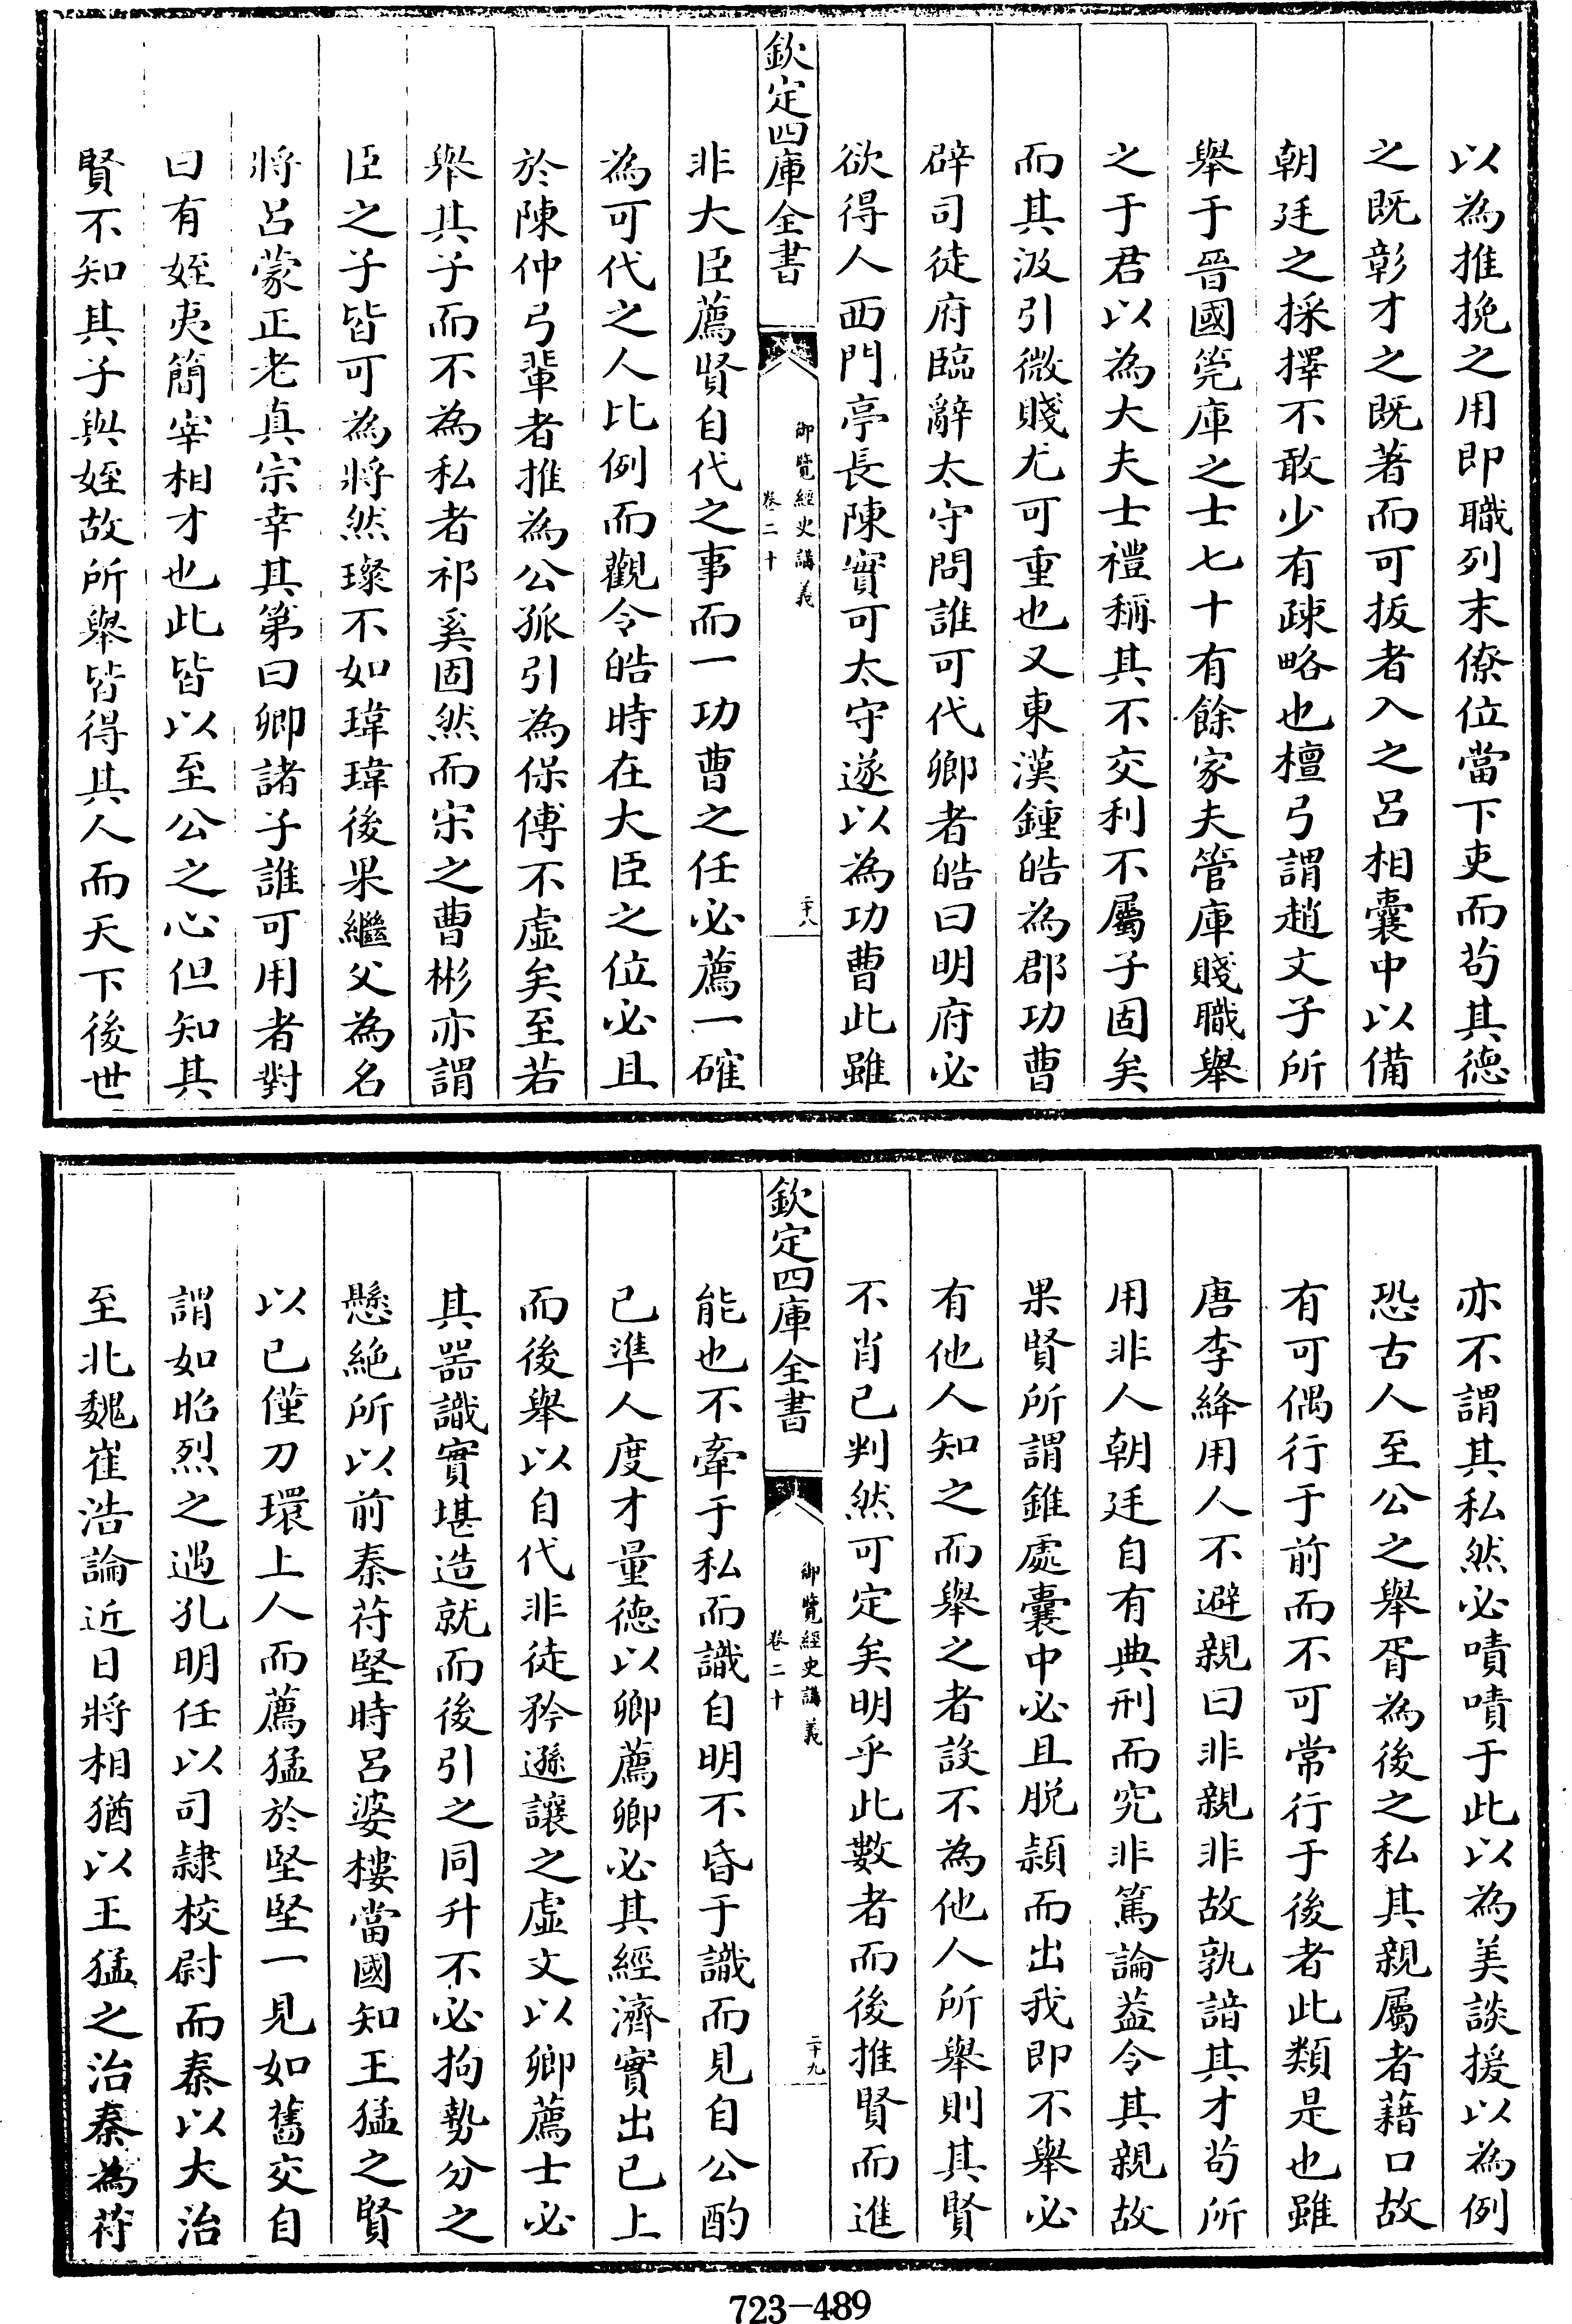 以為推挽之用即職列末僚位當下吏而苟其德
之既彰才之既著而可拔者入之呂相囊中以備
朝廷之採擇不敢少有疎略也檀弓謂趙文子所
舉于晉國筦庫之士七十有餘家夫管庫賤職舉
之于君以為大夫士禮稱其不交利不屬子固矣
而其汲引微賤尤可重也又東漢鍾皓為郡功曹
辟司徒府臨辭太守問誰可代卿者皓曰明府必
欲得人西門亭長陳寔可太守遂以為功曹此雖
欽定四庫全書
御覽經史講義
卷二十
二十八
非大臣薦賢自代之事而一功曹之任必薦一確
為可代之人比例而觀令皓時在大臣之位必且
於陳仲弓輩者推為公孤引為保傅不虛矣至若
舉其子而不為私者祁奚固然而宋之曹彬亦謂
臣之子皆可為將然璨不如瑋瑋後果繼父為名
將呂蒙正老真宗幸其第曰卿諸子誰可用者對
曰有姪夷簡宰相才也此皆以至公之心但知其
賢不知其子與姪故所舉皆得其人而天下後世
亦不謂其私然必嘖嘖于此以為美談援以為例
恐古人至公之舉胥為後之私其親屬者藉口故
有可偶行于前而不可常行于後者此類是也雖
唐李絳用人不避親曰非親非故孰諳其才苟所
用非人朝廷自有典刑而究非篤論葢令其親故
果賢所謂錐處囊中必且脱頴而出我即不舉必
有他人知之而舉之者設不為他人所舉則其賢
不肖已判然可定矣明乎此數者而後推賢而進
欽定四庫全書
御覽經史講義
卷二十
二十九
能也不牽于私而識自明不昏于識而見自公酌
已準人度才量德以卿薦卿必其經濟實出已上
而後舉以自代非徒矜遜讓之虛文以卿薦士必
其噐識實堪造就而後引之同升不必拘勢分之
懸絶所以前秦苻堅時呂婆樓當國知王猛之賢
以已僅刀環上人而薦猛於堅堅一見如舊交自
謂如昭烈之遇孔明任以司隷校尉而秦以大治
至北魏崔浩論近日將相猶以王猛之治秦為苻
723-489